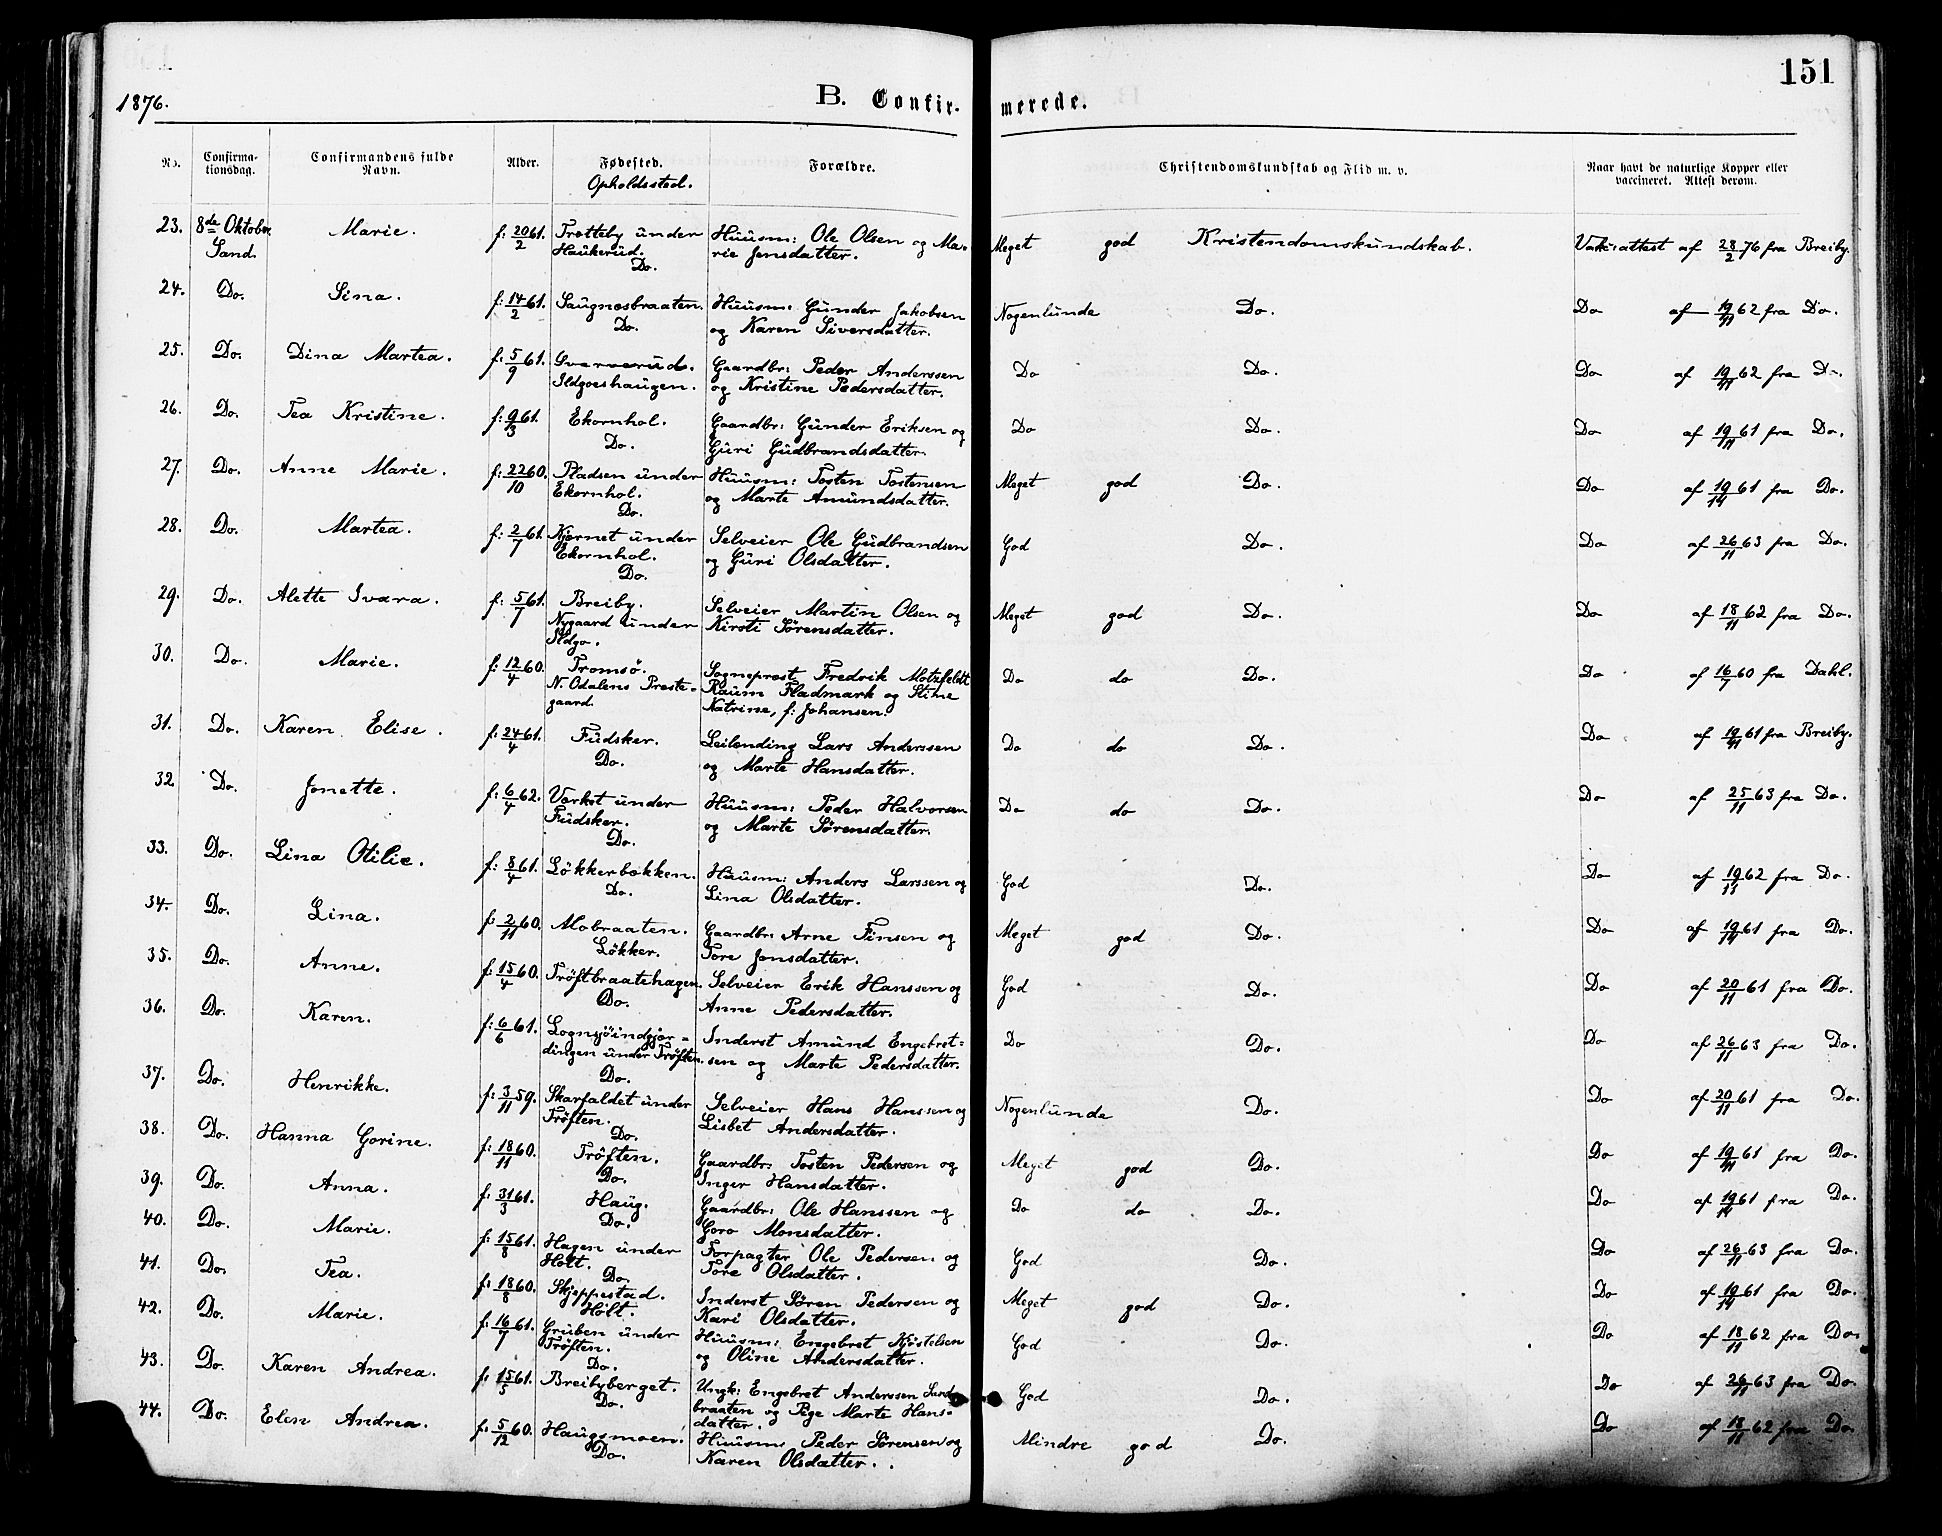 151
1876.
B. Confir-
merede.
No.
Confirma-
tionsdag.
Confirmandens fulde
Navn.
Alder.
Fødested.
Opholdssted.
Forældre.
Christendomskundskab og Flid m. v.
Naar havt de naturlige Kopper eller
vaccineret. Attest derom.
23. 8de Oktober Marie. f: 20/2 61. Trætteby under Huusm: Ole Olsen og Ma- Meget god Kristendomskundskab. Vaksattest af 28/2 76 fra Breiby.
Sand. Haukerud. rie Jensdatter.
Do.
24. Do. Sina. f: 14/2 61. Saugnæsbraaten. Huusm: Gunder Jakobsen Nogenlunde Do. Do af 19/11 62 fra Do.
Do. og Karen Siversdatter.
25. Do. Dina Martea. f: 5/9 61. Sværverud. Gaardbr: Peder Anderssen Do Do. Do af 19/11 62 fra Do.
Ildgoeshaugen. og Kristine Pedersdatter.
26. Do. Tea Kristine. f: 9/3 61. Ekornhol. Gaardbr: Gunder Eriksen og Do Do. Do af 19/11 61 fra Do.
Do. Guri Gudbrandsdatter.
27. Do. Anne Marie. f: 22/10 60. Pladsen under Huusm: Tosten Tostensen Meget god Do. Do af 19/11 61 fra Do.
Ekornhol. og Marte Amundsdatter.
Do.
28. Do. Martea. f: 2/7 61. Kjernet under Selveier Ole Gudbrandsen God Do. Do af 26/11 63 fra Do.
Ekornhol. og Guri Olsdatter.
Do.
29. Do. Alette Svara. f: 5/7 61. Breiby. Selveier Martin Olsen og Meget god Do. Do af 18/11 62 fra Do.
Nygaard under Kirsti Sørensdatter.
Ildgo.
30. Do. Marie. f: 12/4 60. Tromsö. Sogneprest Fredrik Motzfeldt Do do Do. Do af 16/7 60 fra Dahl.
N. Odalens Preste- Raum Fladmark og Stine
gaard. Katrine, f: Johansen.
31. Do. Karen Elise. f: 24/4 61. Fudsker. Leilending Lars Anderssen Do do Do. Do af 19/11 61 fra Breiby.
Do. og Marte Hansdatter.
32 Do. Jonette. f: 6/4 62. Værket under Huusm: Peder Halvorsen Do do Do. Do af 25/11 63 fra Do.
Fudsker. og Marte Sørensdatter.
Do.
33. Do. Lina Otilie. f: 8/4 61. Løkkerbækken. Huusm: Anders Larssen og God Do. Do af 19/11 62 fra Do.
Do. Lina Olsdatter.
34. Do. Lina. f: 2/11 60. Mobraaten. Gaardbr: Arne Finsen og Meget god Do. Do af 19/11 61 fra Do.
Løkker. Tore Jonsdatter.
35. Do. Anne. f: 15/4 60. Trøftbraatehagen. Selveier Erik Hanssen og God Do. Do af 20/11 61 fra Do.
Do. Anne Pedersdatter.
36. Do. Karen. f: 6/6 61. Lognsjöindgjær- Inderst Amund Engebret- Do Do. Do af 26/11 63 fra Do.
dingen under Trøften. sen og Marte Pedersdatter.
Do.
37. Do. Henrikke. f: 3/11 59. Skarfaldet under Selveier Hans Hanssen og Nogenlunde Do. Do af 20/11 61 fra Do.
Trøften. Lisbet Andersdatter.
Do.
38. Do. Hanna Gorine. f: 18/11 60. Trøften. Gaardbr: Tosten Pedersen og Meget god Do. Do af 19/11 61 fra Do.
Do. Inger Hansdatter.
39. Do. Anna. f: 31/3 61. Haug. Gaardbr: Ole Hanssen og Do do Do. Do af 19/11 61 fra Do.
Do. Goro Monsdatter.
40. Do. Marie. f: 15/8 61. Hagen under Forpagter Ole Pedersen og God Do. Do af 26/11 63 fra Do.
Holt. Tore Olsdatter.
Do.
41. Do. Tea. f: 18/8 60. Skjeppestad. Inderst Søren Pedersen og Meget god Do. Do af 19/11 61 fra Do.
Holt. Kari Olsdatter.
42. Do. Marie. f: 16/7 61. Gruben under Huusm: Engebret Kjøstelsen God Do. Do af 18/11 62 fra Do.
Trøften. og Oline Andersdatter.
Do.
43. Do. Karen Andrea. f: 15/5 61. Breibyberget. Ungk: Engebret Anderssen Sand- God Do. Do af 26/11 63 fra Do.
Do. braaten og Pige Marte Hans-
datter.
44. Do. Elen Andrea. f: 5/12 60. Haugsmoen. Huusm: Peder Sørensen og Mindre god Do. Do af 18/11 62 fra Do.
Do. Karen Olsdatter.